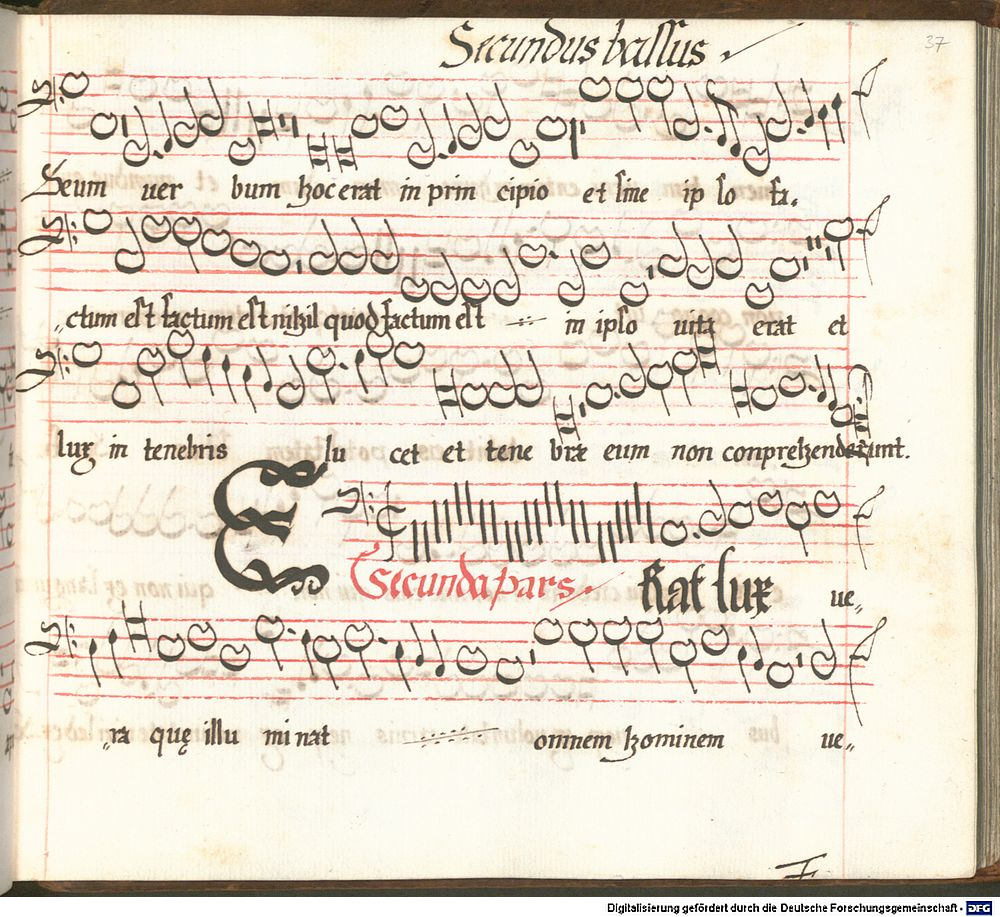 Secundus bassus.
37
Seum uer bum hoc erat in prin cipio et sine ip so fa.
„ctum est factum est nihil quod factum est in ipso uita erat et
lux in tenebris lu cet et tene bræ eum non conprehenderunt.
Secunda pars. ERat lux ue„
„ra quę illu minat omnem hominem ue„
Digitalisierung gefördert durch die Deutsche Forschungsgemeinschaft - DFG